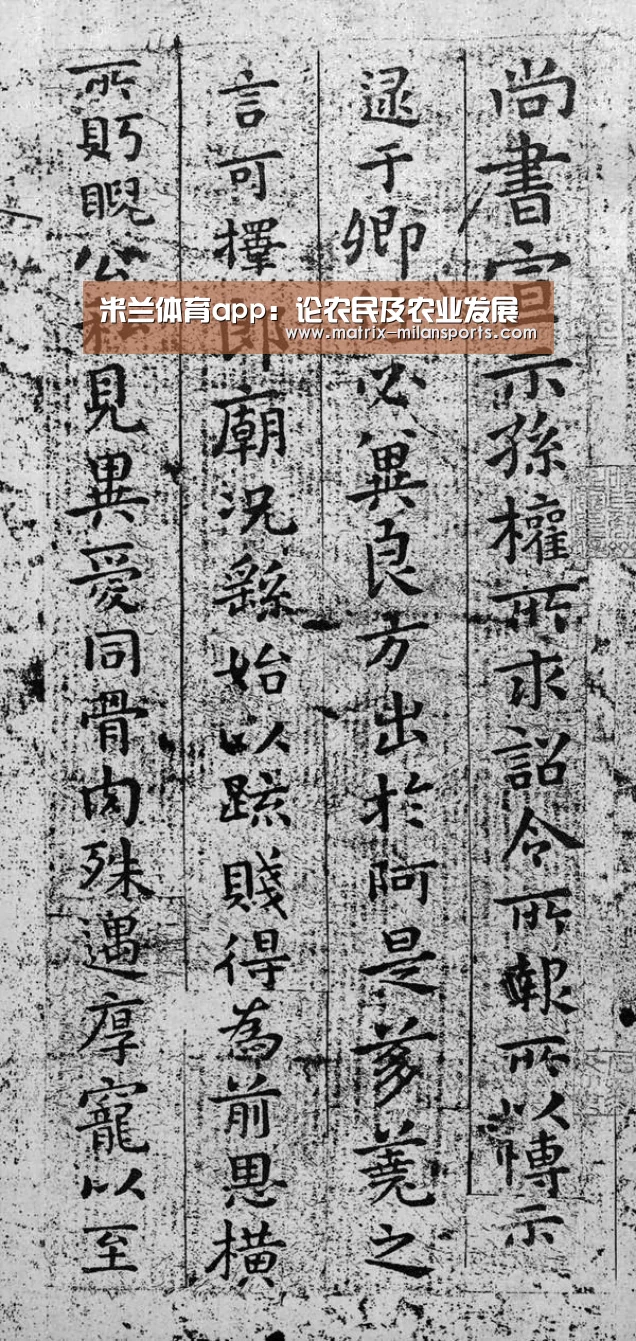 米兰体育app：论农民及农业发展
www.matrix-milansports.com
尚書宣示孫權所求詔令所報所以博示
逮于卿必冀良方出於阿是芻蕘之
言可擇郎廟況繇始以疏賤得為前恩橫
所眄睨公私見異愛同骨肉殊遇厚寵以至